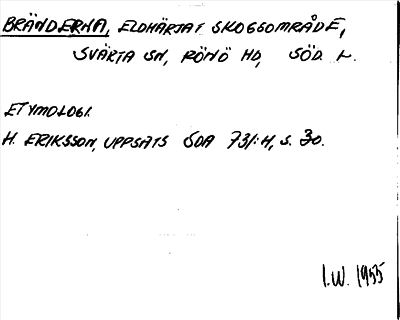 BRÄNDERNA, ELDHÄRJAT SKOGSOMRÅDE,
SVÄRTA SN, RÖNÖ HD, SÖD. L.
ETYMOLOGI.
H. ERIKSSON, UPPSATS ÖDA 731:4, S. 30.
I.W. 1955